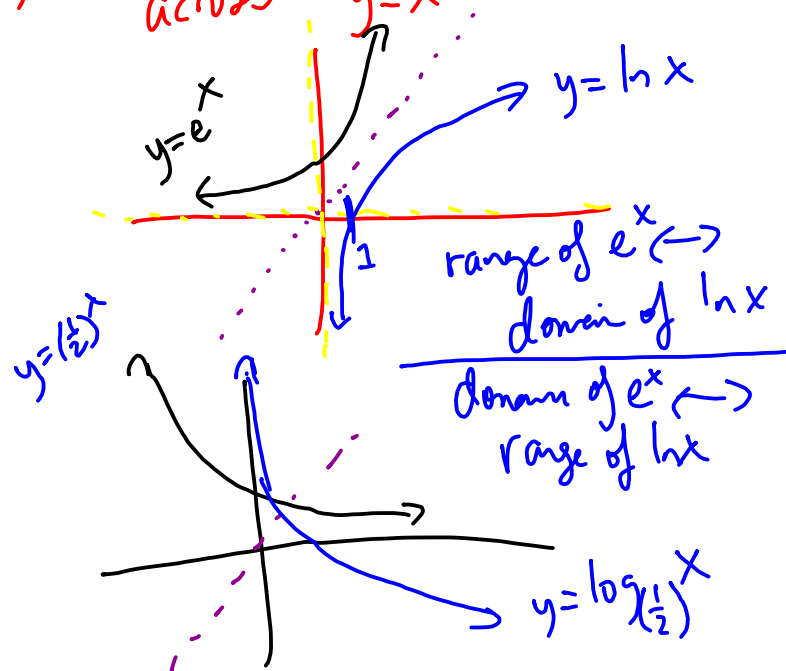 across y=x
y=e^x
y=ln x
1
range of e^x ↔
domain of ln x
domain of e^x ↔
range of lnx
y=(1/2)^x
y=log_(1/2) x